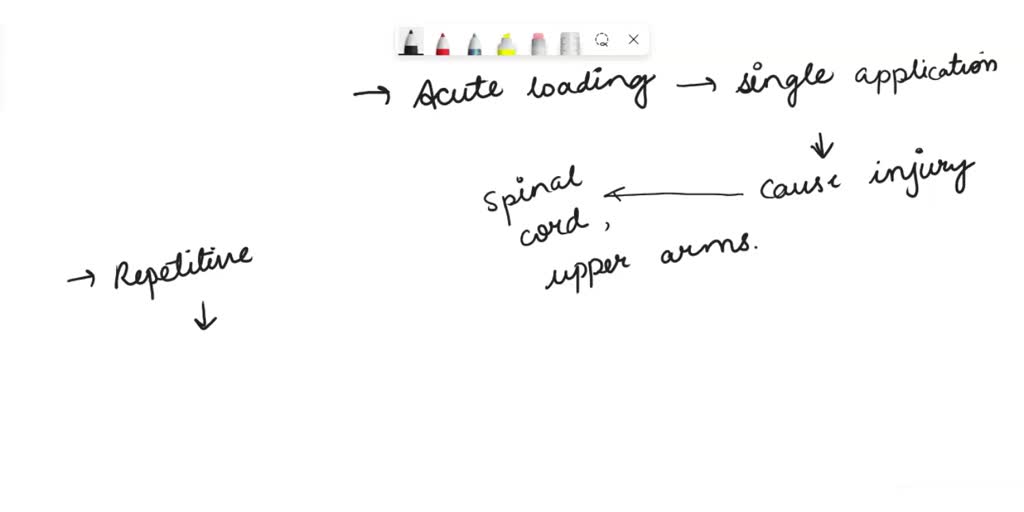 → Acute loading → single application
↓
cause injury
spinal
cord,
upper arms.
→ Repetitive
↓